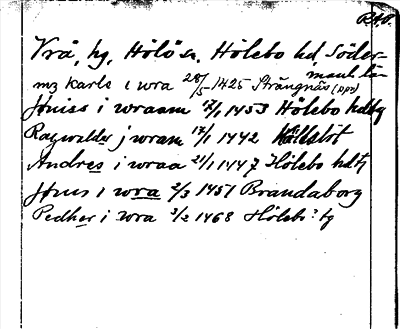 RAP.
Vrå, hg, Hölö sn. Hölebo hd, Söder-
manl. län
mz karls i wra 28/5 1425 Strängnäs (dps)
Jöniss i wraam 17/1 1453 Hölebo hdtg
Ragwalder j wram 17/1 1442
Andres i wraa 21/1 1447 Hölebo hdtg
Jönis i wra 2/3 1451 Brandaborg
Pedher i wra 3/2 1468 Hölebo? tg